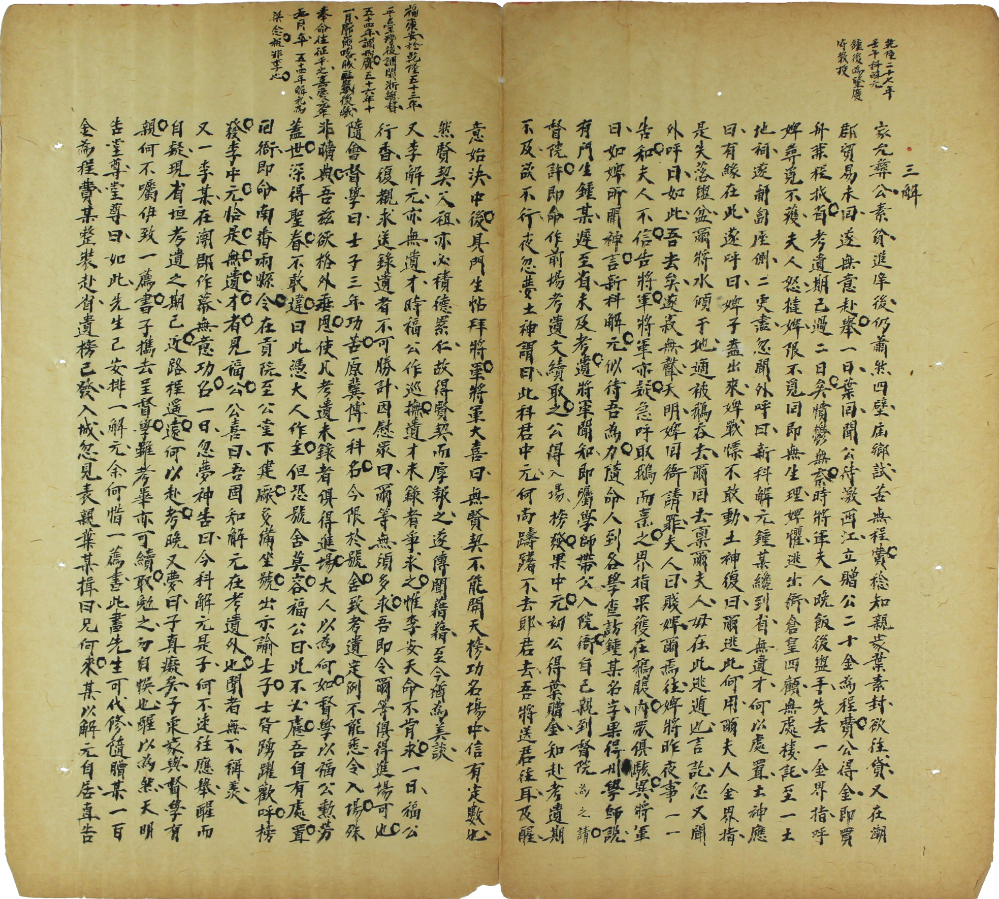 乾隆二十七年
壬午科解元
鍾後為肇慶
府教授
三解
家允彝公素貧進庠後仍蕭然四壁屆鄉試苦無程費稔知親家葉素封欲往貸又在潮
郡貿易未回遂無意赴舉一日葉回聞公待激西江立贈公二十金為程費公得金即買
舟東程抵省考遺期已過二日矣憤鬱無奈時將軍夫人晚飯後盥手失去一金界指呼
婢尋覓不獲夫人怒撻婢限不覓回即無生理婢懼逃出衙倉皇四顧無處棲託至一土
地祠遂漸匿座側二更盡忽聞外呼曰新科解元鍾某纔到省無遺才何以處置土神應
曰有緣在此遂呼曰婢子盍出來婢戰慄不敢動土神復曰爾逃此何用爾夫人金界指
是失落盥盆爾將水傾于地適被鵝吞去爾回去稟爾夫人毋在此逃遁也言訖忽又聞
外呼曰如此吾去矣遂寂無聲天明婢回衙請罪夫人曰賤婢爾焉往婢將昨夜事一一
告知夫人不信告將軍將軍亦疑急呼取鵝而烹之界指果獲在鵝腹內眾俱駭異將軍
曰如婢所聞神言新科解元似待吾為力隨命人到各學查訪鍾某名字果得州學師說
有門生鍾某遲至省未及考遺將軍聞知即囑學師帶公入院衙自己親到督院為之請
督院許即命作前場考遺文績取之公得入場榜發果中元初公得葉贈金知赴考遺期
不及欲不行夜忽夢土神謂曰此科君中元何尚躊躇不去耶君去吾將送君往耳及醒
意始決中後具門生帖拜將軍將軍大喜曰無賢契不能開天榜功名場中信有定數也
然賢契乃祖亦必積德累仁故得賢契而厚報之遂傳聞藉藉至今猶為美談
又李解元亦無遺才時福公作巡撫遺才未錄者爭求之惟李安天命不肯求一日福公
行香復親求送錄遺者不可勝計因慰眾曰爾等無須多求吾即令爾等俱得進場可也
隨會督學曰士子三年功苦原冀博一科名今限於號舍致考遺定例不能悉令入場殊
非曠典吾茲欲格外垂恩使凡考遺未錄者俱得進場大人以為何如督學以福公勳勞
蓋世深得聖眷不敢違曰此憑大人作主但恐號舍莫容福公曰此不必慮吾自有處置
回衙即命南番兩縣令在貢院至公堂下建廠多備坐號出示諭士子士子皆踴躍歡呼榜
發李中元恰是無遺才者見福公公喜曰吾固知解元在考遺外也聞者無不稱羨
又一李某在潮郡作幕無意功名一日忽夢神告曰今科解元是子何不速往應舉醒而
自疑現省垣考遺之期已近路程遙遠何以赴考晚又夢曰子真癡矣子東家與督學有
親何不囑伊致一薦書子攜去呈督學雖考畢亦可續取勉之勿自悞也醒以為然天明
告堂尊堂尊曰如此先生已安排一解元余何惜一薦書此書先生可代修隨贈某一百
金為程費某整裝赴省遺榜已發入城忽見表親葉某揖曰兄何來某以解元自居直告
福康安於乾隆五十三年
平臺灣後調閩浙總督
五十四年調兩廣五十六年十
一月
奉命往征平之嘉慶元年
五月卒五十四年解元為